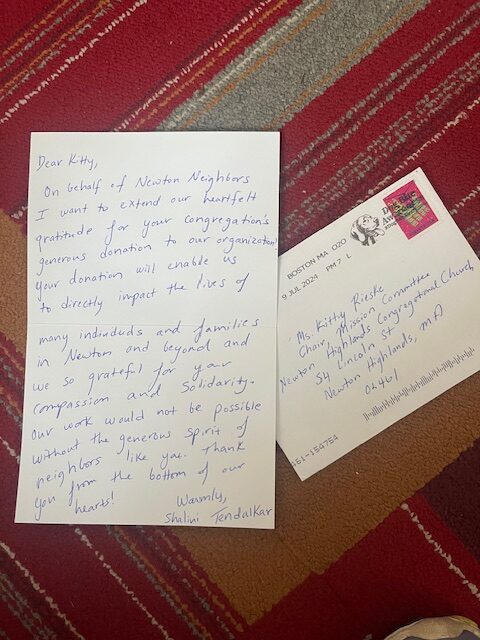 Dear Kitty,
On behalf of Newton Neighbors
I want to extend our heartfelt
gratitude for your congregation's
generous donation to our organization!
your donation will enable us
to directly impact the lives of
many individuds and families
in Newton and beyond and
we so grateful for your
compassion and Solidarity.
Our work would not be possible
without the generous spirit of
neighbors like you. Thank
you from the bottom of our
hearts!
Warmly,
Shalini Tendalkar
BOSTON MA 020
9 JUL 2024 PM 7 L
Ms. Kitty Rieske
Chair, Mission Committee
Newton Highlands Congregational Church
54 Lincoln St
Newton Highlands, MA
02461